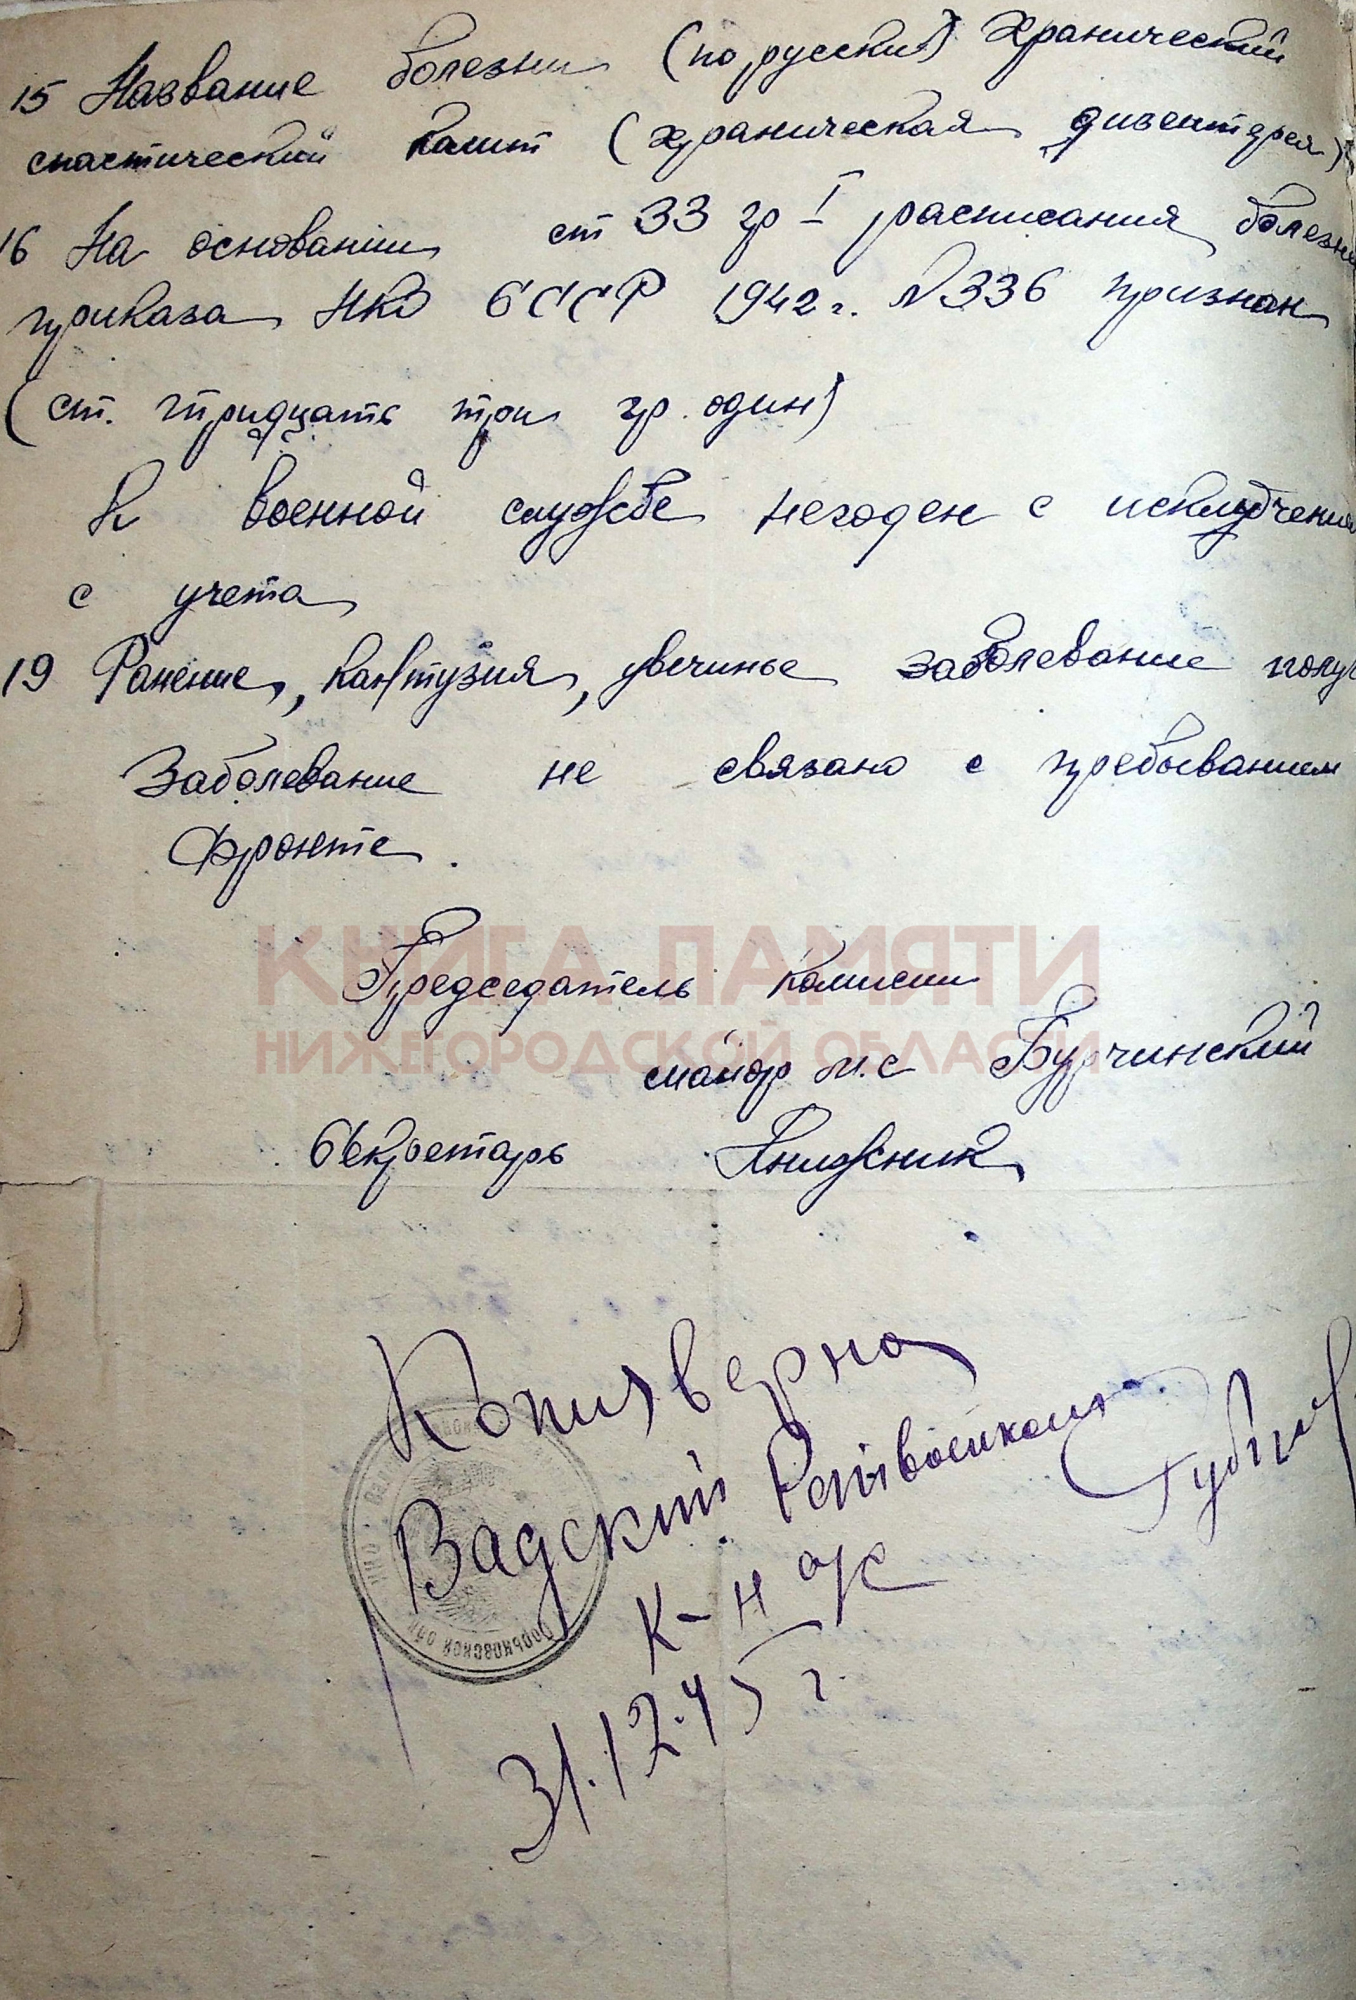 15 Название болезни (по русски) Хранический
спастический калит (храническая дизентерея)
16 На основании ст 33 гр I расписания болезне
приказа НКО СССР 1942 г. N 336 признан
(ст. тридцать три гр. один)
К военной службе негоден с исключением
с учета
19 Ранение, кантузия, увечинье заболевание получ
Заболевание не связано с пребыванием
Фронте.
КНИГА ПАМЯТИ
НИЖЕГОРОДСКОЙ ОБЛАСТИ
Председатель комисии
майор м.с Бурчинский
Секретарь
Копия верна
Вадский Райвоенком
К-н а/с
31.12.45 г.
Горьковской обл